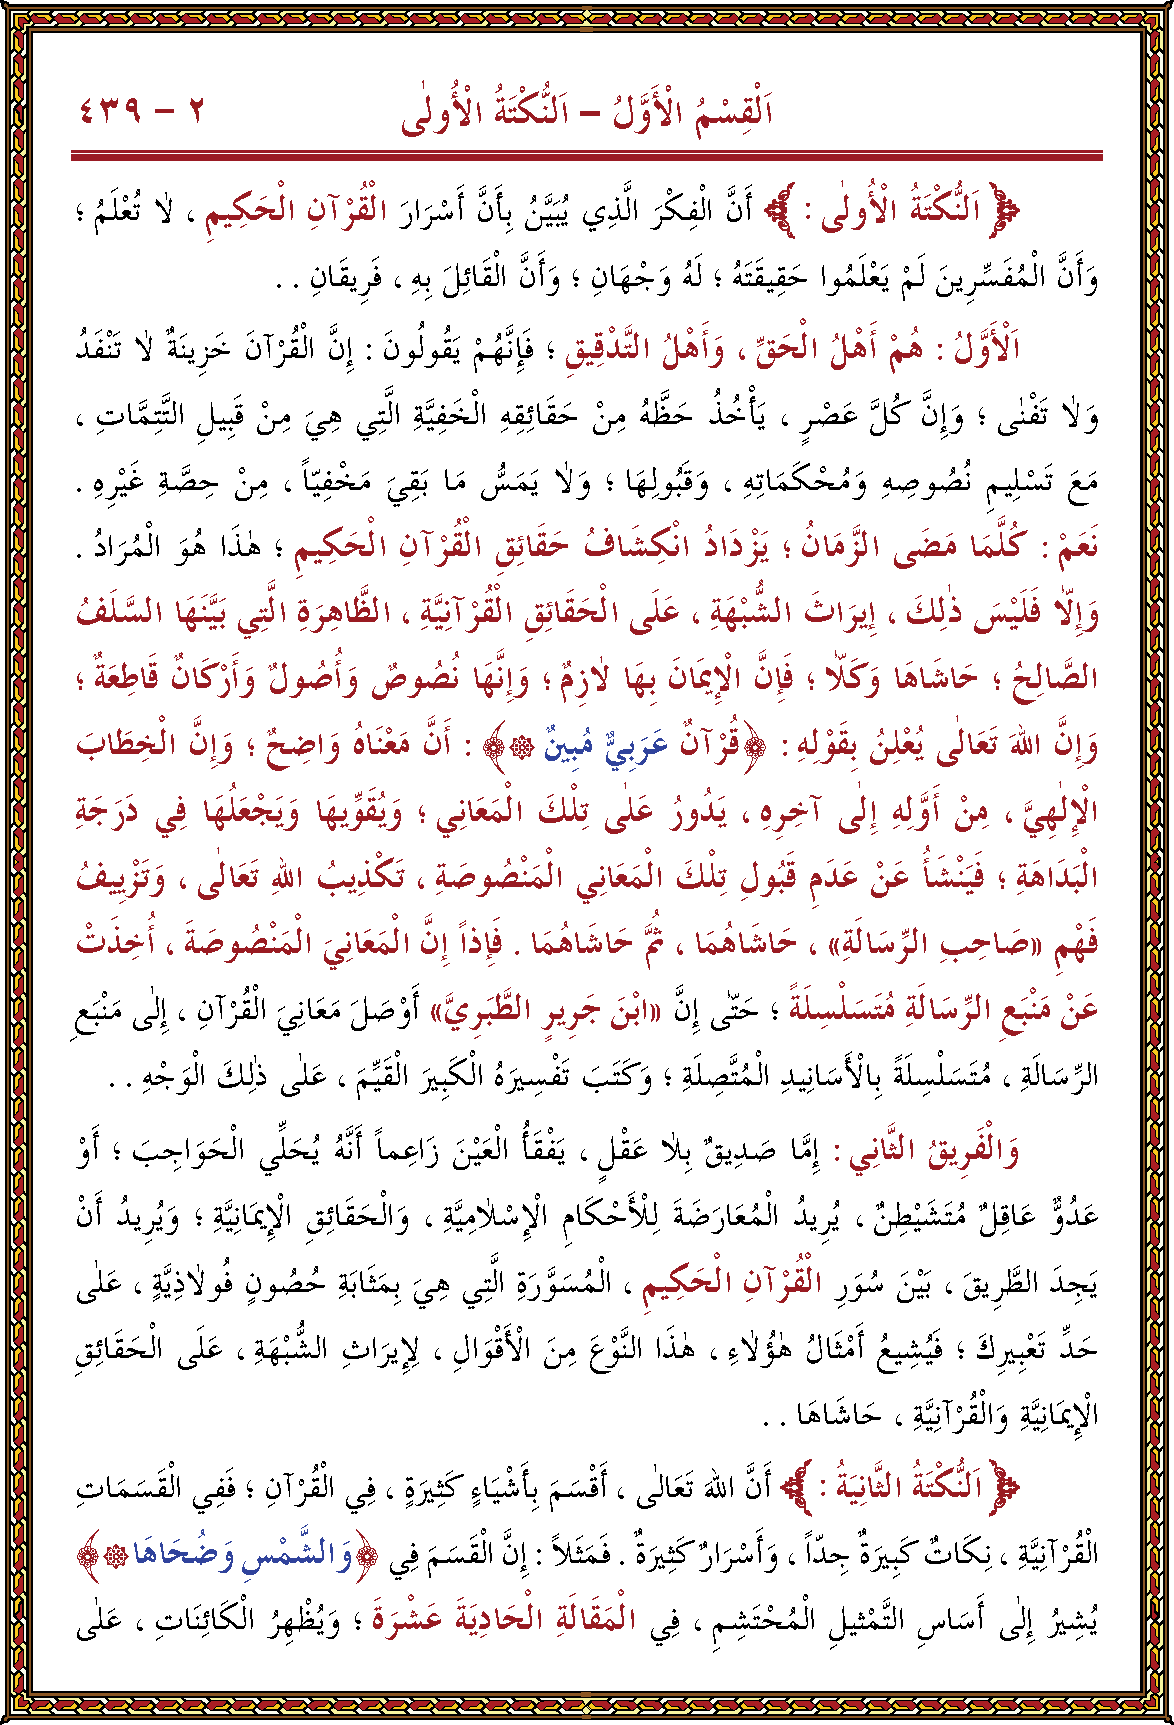 اَلْقِسْمُ الْأَوَّلُ – اَلنُّكْتَةُ الْأُولٰى ٢ – ٤٣٩
﴿ اَلنُّكْتَةُ الْأُولٰى : ﴾ أَنَّ الْفِكْرَ الَّذِي يُبَيَّنُ بِأَنَّ أَسْرَارَ الْقُرْآنِ الْحَكِيمِ ، لَا تُعْلَمُ ؛
وَأَنَّ الْمُفَسِّرِينَ لَمْ يَعْلَمُوا حَقِيقَتَهُ ؛ لَهُ وَجْهَانِ ؛ وَأَنَّ الْقَائِلَ بِهِ ، فَرِيقَانِ . .
اَلْأَوَّلُ : هُمْ أَهْلُ الْحَقِّ ، وَأَهْلُ التَّدْقِيقِ ؛ فَإِنَّهُمْ يَقُولُونَ : إِنَّ الْقُرْآنَ خَزِينَةٌ لَا تَنْفَدُ
وَلَا تَفْنٰى ؛ وَإِنَّ كُلَّ عَصْرٍ ، يَأْخُذُ حَظَّهُ مِنْ حَقَائِقِهِ الْخَفِيَّةِ الَّتِي هِيَ مِنْ قَبِيلِ التَّتِمَّاتِ ،
مَعَ تَسْلِيمِ نُصُوصِهِ وَمُحْكَمَاتِهِ ، وَقَبُولِهَا ؛ وَلَا يَمَسُّ مَا بَقِيَ مَخْفِيّاً ، مِنْ حِصَّةِ غَيْرِهِ .
نَعَمْ : كُلَّمَا مَضَى الزَّمَانُ ؛ يَزْدَادُ انْكِشَافُ حَقَائِقِ الْقُرْآنِ الْحَكِيمِ ؛ هٰذَا هُوَ الْمُرَادُ .
وَإِلَّا فَلَيْسَ ذٰلِكَ ، إِيرَاثَ الشُّبْهَةِ ، عَلَى الْحَقَائِقِ الْقُرْآنِيَّةِ ، الظَّاهِرَةِ الَّتِي بَيَّنَهَا السَّلَفُ
الصَّالِحُ ؛ حَاشَاهَا وَكَلَّا ؛ فَإِنَّ الْإِيمَانَ بِهَا لَازِمٌ ؛ وَإِنَّهَا نُصُوصٌ وَأُصُولٌ وَأَرْكَانٌ قَاطِعَةٌ ؛
وَإِنَّ اللهَ تَعَالٰى يُعْلِنُ بِقَوْلِهِ : ﴿قُرْآنٌ عَرَبِيٌّ مُبِينٌ۞﴾ : أَنَّ مَعْنَاهُ وَاضِحٌ ؛ وَإِنَّ الْخِطَابَ
الْإِلٰهِيَّ ، مِنْ أَوَّلِهِ إِلٰى آخِرِهِ ، يَدُورُ عَلٰى تِلْكَ الْمَعَانِي ؛ وَيُقَوِّيهَا وَيَجْعَلُهَا فِي دَرَجَةِ
الْبَدَاهَةِ ؛ فَيَنْشَأُ عَنْ عَدَمِ قُبُولِ تِلْكَ الْمَعَانِي الْمَنْصُوصَةِ ، تَكْذِيبُ اللهِ تَعَالٰى ، وَتَزْيِيفُ
فَهْمِ «صَاحِبِ الرِّسَالَةِ» ، حَاشَاهُمَا ، ثُمَّ حَاشَاهُمَا . فَإِذاً إِنَّ الْمَعَانِيَ الْمَنْصُوصَةَ ، أُخِذَتْ
عَنْ مَنْبَعِ الرِّسَالَةِ مُتَسَلْسِلَةً ؛ حَتّٰى إِنَّ «ابْنَ جَرِيرٍ الطَّبَرِيَّ» أَوْصَلَ مَعَانِيَ الْقُرْآنِ ، إِلٰى مَنْبَعِ
الرِّسَالَةِ ، مُتَسَلْسِلَةً بِالْأَسَانِيدِ الْمُتَّصِلَةِ ؛ وَكَتَبَ تَفْسِيرَهُ الْكَبِيرَ الْقَيِّمَ ، عَلٰى ذٰلِكَ الْوَجْهِ . .
وَالْفَرِيقُ الثَّانِي : إِمَّا صَدِيقٌ بِلَا عَقْلٍ ، يَفْقَأُ الْعَيْنَ زَاعِماً أَنَّهُ يُحَلِّي الْحَوَاجِبَ ؛ أَوْ
عَدُوٌّ عَاقِلٌ مُتَشَيْطِنٌ ، يُرِيدُ الْمُعَارَضَةَ لِلْأَحْكَامِ الْإِسْلَامِيَّةِ ، وَالْحَقَائِقِ الْإِيمَانِيَّةِ ؛ وَيُرِيدُ أَنْ
يَجِدَ الطَّرِيقَ ، بَيْنَ سُوَرِ الْقُرْآنِ الْحَكِيمِ ، الْمُسَوَّرَةِ الَّتِي هِيَ بِمَثَابَةِ حُصُونٍ فُولَاذِيَّةٍ ، عَلٰى
حَدِّ تَعْبِيرِكَ ؛ فَيُشِيعُ أَمْثَالُ هٰؤُلَاءِ ، هٰذَا النَّوْعَ مِنَ الْأَقْوَالِ ، لِإِيرَاثِ الشُّبْهَةِ ، عَلَى الْحَقَائِقِ
الْإِيمَانِيَّةِ وَالْقُرْآنِيَّةِ ، حَاشَاهَا . .
﴿ اَلنُّكْتَةُ الثَّانِيَةُ : ﴾ أَنَّ اللهَ تَعَالٰى ، أَقْسَمَ بِأَشْيَاءٍ كَثِيرَةٍ ، فِي الْقُرْآنِ ؛ فَفِي الْقَسَمَاتِ
الْقُرْآنِيَّةِ ، نِكَاتٌ كَبِيرَةٌ جِدّاً ، وَأَسْرَارٌ كَثِيرَةٌ . فَمَثَلاً : إِنَّ الْقَسَمَ فِي ﴿وَالشَّمْسِ وَضُحَاهَا۞﴾
يُشِيرُ إِلٰى أَسَاسِ التَّمْثِيلِ الْمُحْتَشِمِ ، فِي الْمَقَالَةِ الْحَادِيَةَ عَشْرَةَ ؛ وَيُظْهِرُ الْكَائِنَاتِ ، عَلٰى